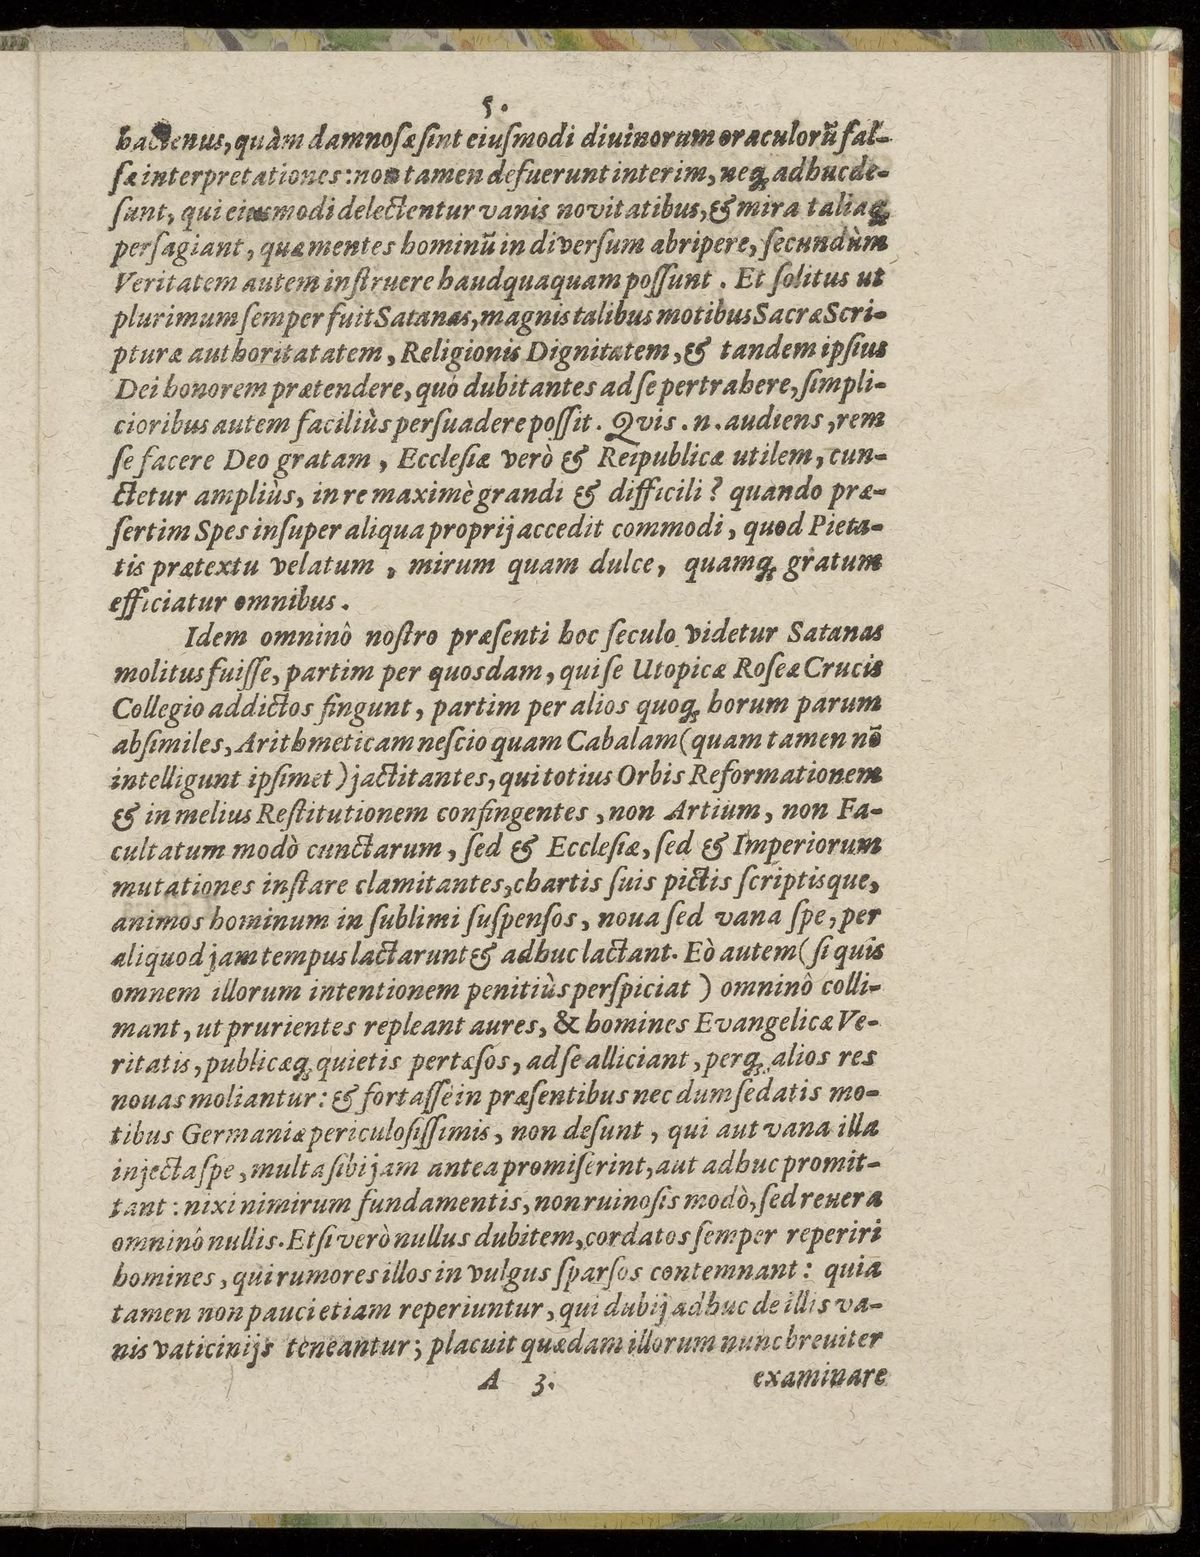 5.
hactenus, quàm damnosæ sint eiusmodi diuinorum oraculorũ fal-
sæ interpretationes: non tamen defuerunt interim, neq; adhuc de-
sunt, qui eiusmodi delectentur vanis novitatibus, & mira taliaq;
persagiant, quæ mentes hominũ in diversum abripere, secundùm
Veritatem autem instruere haudquaquam possunt. Et solitus ut
plurimum semper fuit Satanas, magnis talibus motibus Sacræ Scri-
pturæ authoritatatem, Religionis Dignitatem, & tandem ipsius
Dei honorem prætendere, quó dubitantes ad se pertrahere, simpli-
cioribus autem faciliùs persuadere possit. Qvis .n. audiens, rem
se facere Deo gratam, Ecclesiæ verò & Reipublicæ utilem, cun-
ctetur ampliùs, in re maximè grandi & difficili? quando præ-
sertim Spes insuper aliqua proprij accedit commodi, quod Pieta-
tis prætextu velatum, mirum quam dulce, quamq; gratum
efficiatur omnibus.
Idem omninô nostro præsenti hoc seculo videtur Satanas
molitus fuisse, partim per quosdam, qui se Utopicæ Roseæ Crucis
Collegio addictos fingunt, partim per alios quoq; horum parum
absimiles, Arithmeticam nescio quam Cabalam (quam tamen nō
intelligunt ipsimet) jactitantes, qui totius Orbis Reformationem
& in melius Restitutionem confingentes, non Artium, non Fa-
cultatum modò cunctarum, sed & Ecclesiæ, sed & Imperiorum
mutationes instare clamitantes, chartis suis pictis scriptisque,
animos hominum in sublimi suspensos, noua sed vana spe, per
aliquod jam tempus lactarunt & adhuc lactant. Eò autem (si quis
omnem illorum intentionem penitiùs perspiciat) omninô colli-
mant, ut prurientes repleant aures, & homines Evangelicæ Ve-
ritatis, publicæq; quietis pertæsos, ad se alliciant, perq; alios res
nouas moliantur: & fortassè in præsentibus nec dum sedatis mo-
tibus Germaniæ periculosissimis, non desunt, qui aut vana illa
injecta spe, multa sibi jam antea promiserint, aut adhuc promit-
tant: nixi nimirum fundamentis, non ruinosis modò, sed reuera
omninô nullis. Et si verò nullus dubitem, cordatos semper reperiri
homines, qui rumores illos in vulgus sparsos contemnant: quia
tamen non pauci etiam reperiuntur, qui dubij adhuc de illis va-
nis vaticinijs teneantur; placuit quædam illorum nunc breuiter
A 3. examinare